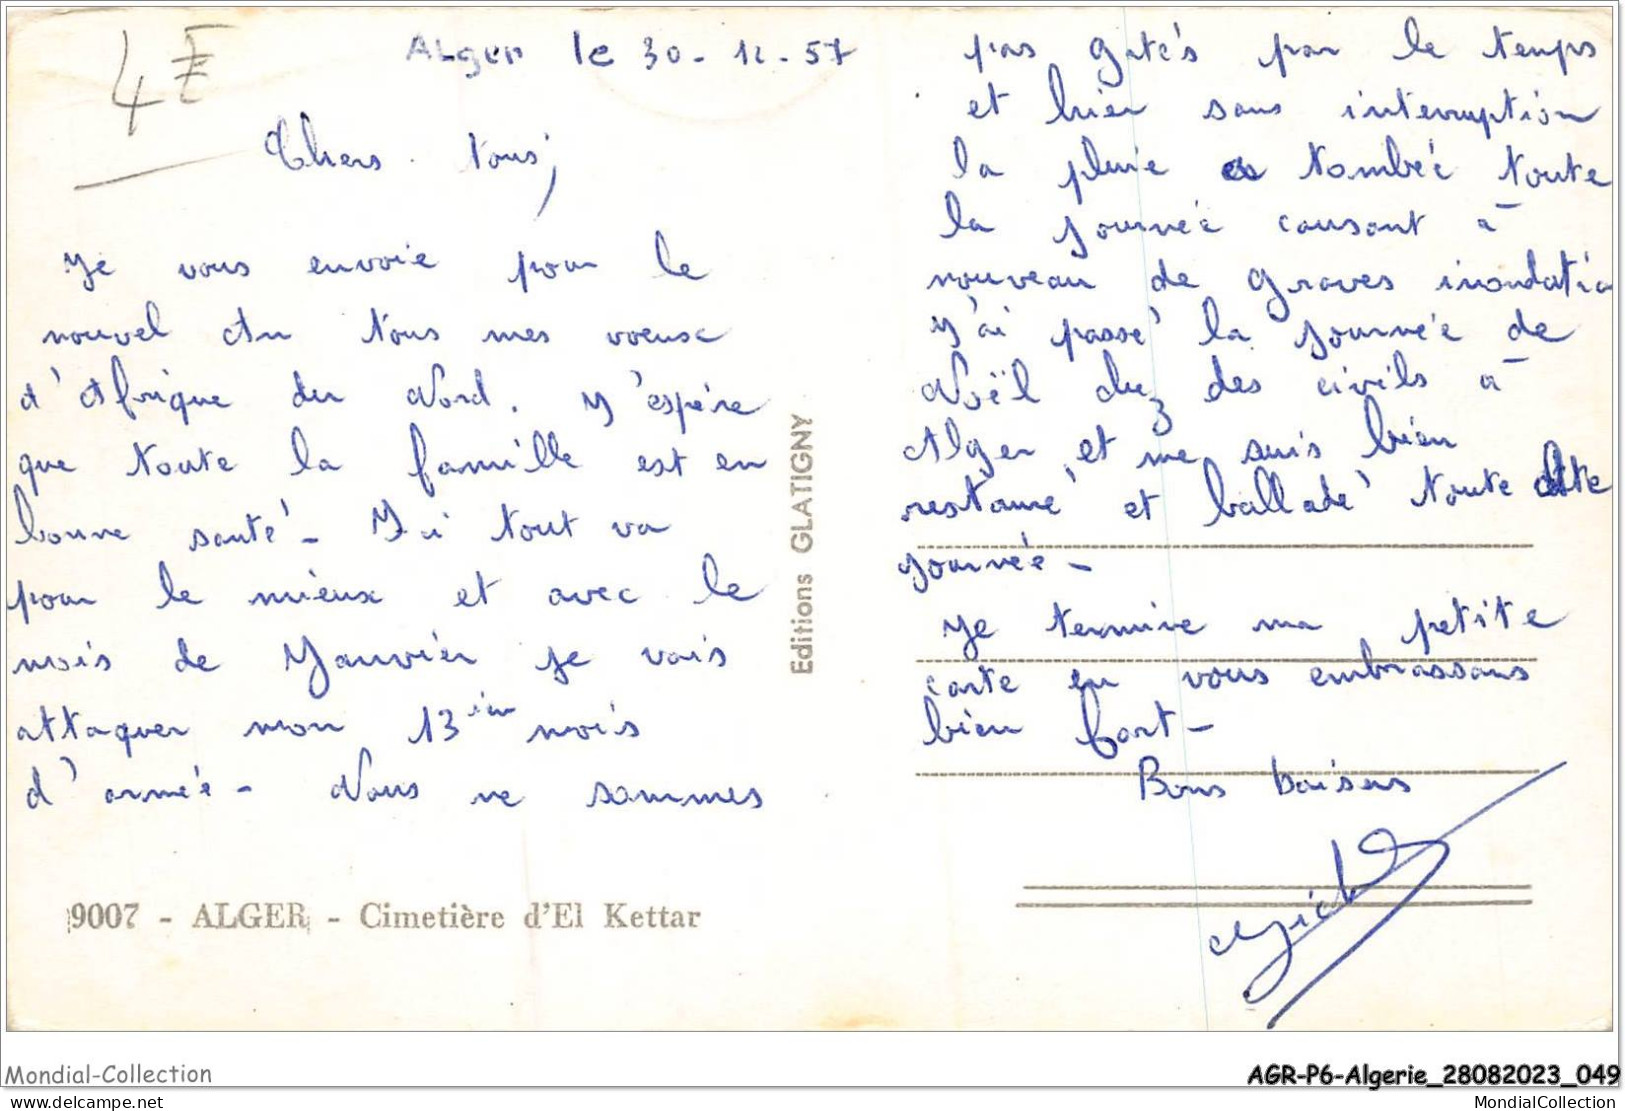 4E
Alger le 30-12-57
Chers Tous,
Je vous envoie pour le
nouvel An Tous mes voeux
d'Afrique du Nord. J'espère
que toute la famille est en
bonne santé - Ici tout va
pour le mieux et avec le
mois de Janvier je vais
attaquer mon 13ième mois
d'armée - Nous ne sommes
9007 - ALGER - Cimetière d'El Kettar
Editions GLATIGNY
pas gatés par le temps
et hier sans interruption
la pluie a tombée toute
la journée causant à
nouveau de graves inondatio
J'ai passé la journée de
Noël chez des civils à
Alger et me suis bien
restauré et balladé toute cette
journée -
Je termine ma petite
carte en vous embrassans
bien fort -
Bons baisers
Mondial-Collection
AGR-P6-Algerie_28082023_049
www.delcampe.net
MondialCollection